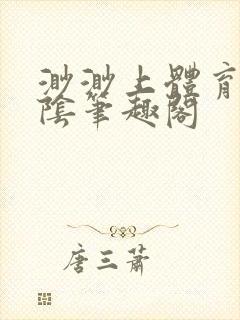 渺渺上體育
陰筆趣閣
唐三蕭